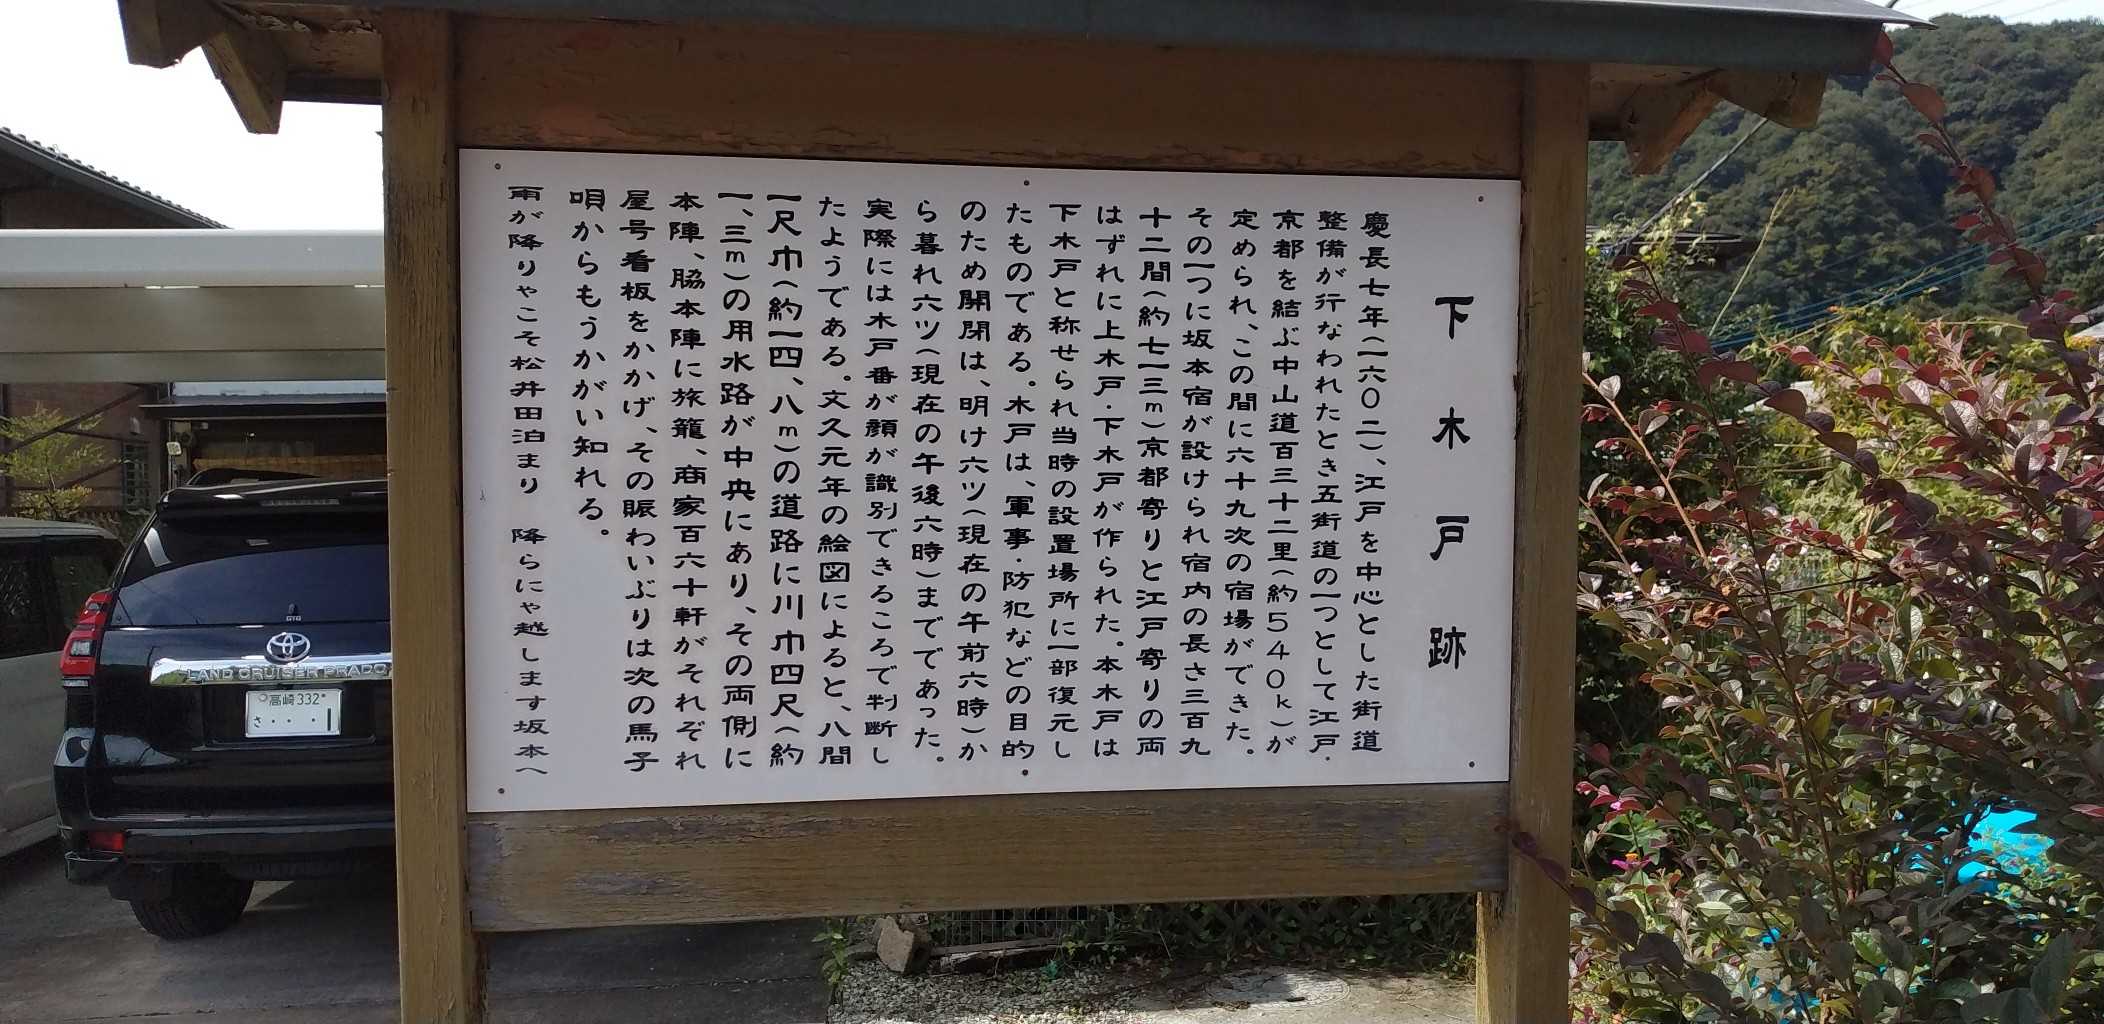 下木戸跡
慶長七年(一六〇二)、江戸を中心とした街道
整備が行なわれたとき五街道の一つとして江戸・
京都を結ぶ中山道百三十二里(約540k)が
定められ、この間に六十九次の宿場ができた。
その一つに坂本宿が設けられ宿内の長さ三百九
十二間(約七一三m)京都寄りと江戸寄りの両
はずれに上木戸・下木戸が作られた。本木戸は
下木戸と称せられ当時の設置場所に一部復元し
たものである。木戸は、軍事・防犯などの目的
のため開閉は、明け六ツ(現在の午前六時)か
ら暮れ六ツ(現在の午後六時)まであった。
実際には木戸番が顔が識別できるころで判断し
たようである。文久元年の絵図によると、八間
一尺巾(約一四、八m)の道路に川巾四尺(約
一、三m)の用水路が中央にあり、その両側に
本陣、脇本陣に旅籠、商家百六十軒がそれぞれ
屋号看板をかかげ、その賑わいぶりは次の馬子
唄からもうかがい知れる。
雨が降りゃこそ松井田泊まり 降らにゃ越します坂本へ
TOYOTA
LAND CRUISER PRADO
高崎 332
さ ・・・1